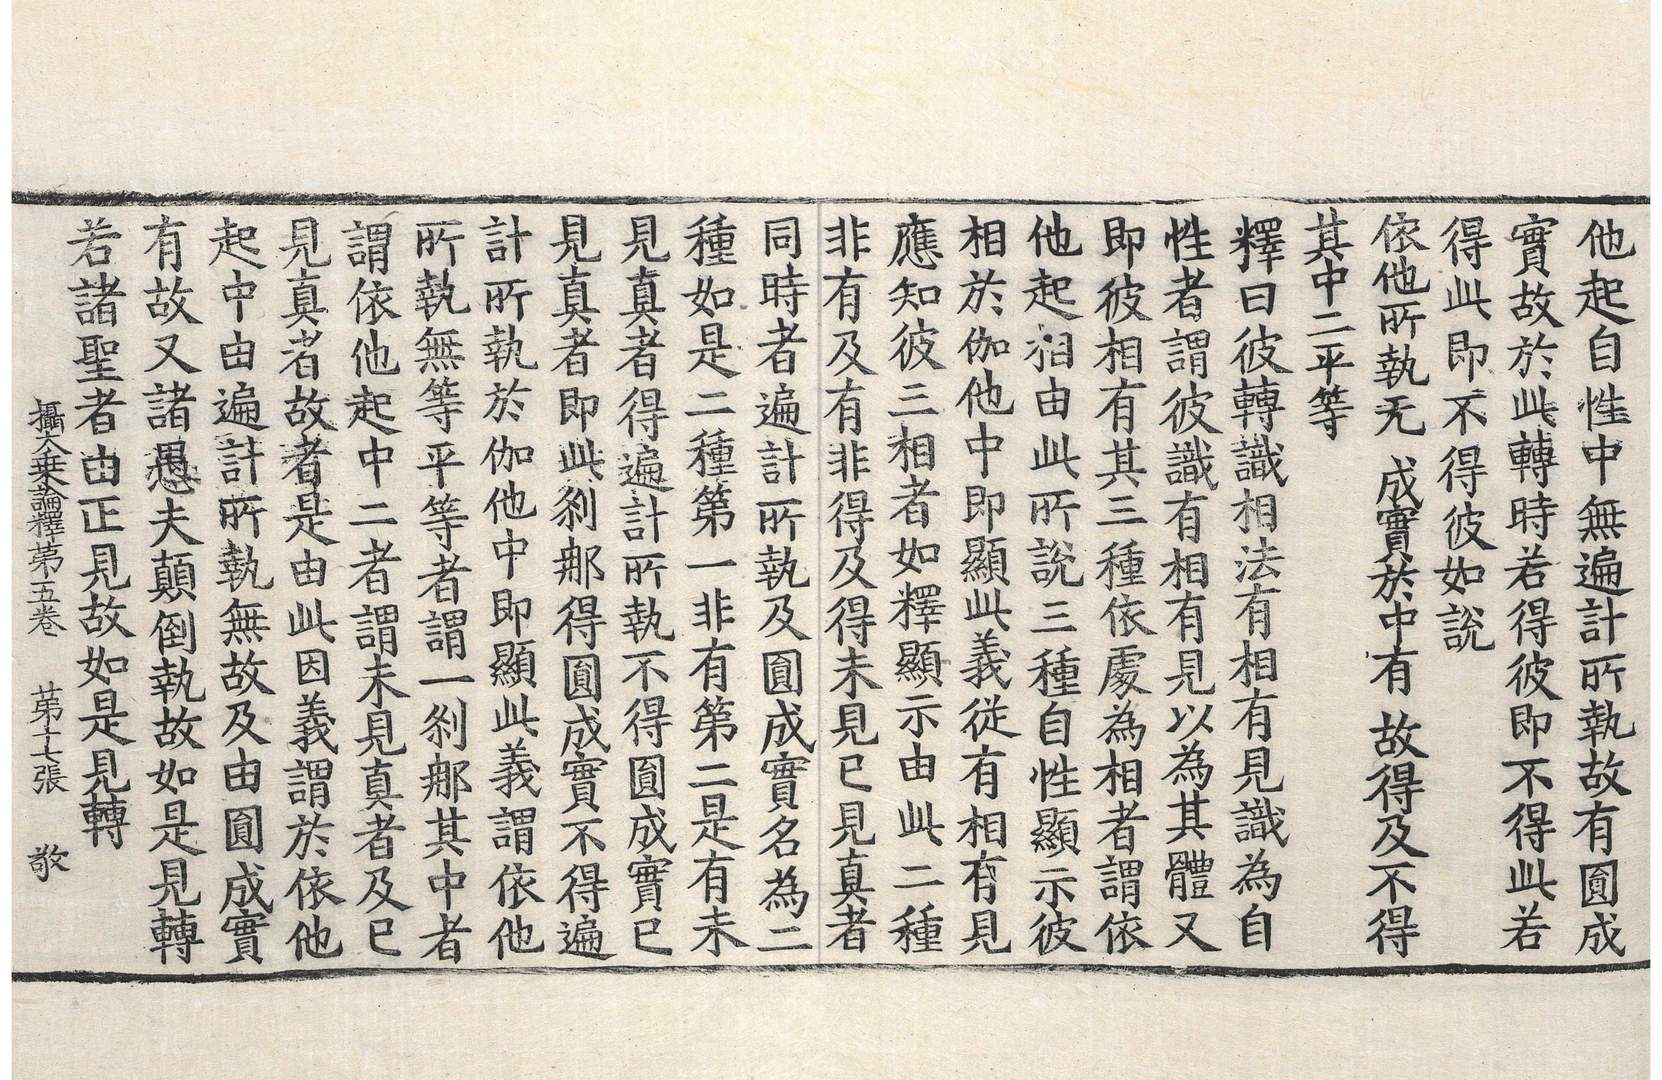 他起自性中無遍計所執故有圓成
實故於此轉時若得彼即不得此若
得此即不得彼如說
依他所執无 成實於中有 故得及不得
其中二平等
釋曰彼轉識相法有相有見識為自
性者謂彼識有相有見以為其體又
即彼相有其三種依處為相者謂依
他起相由此所說三種自性顯示彼
相於伽他中即顯此義從有相有見
應知彼三相者如釋顯示由此二種
非有及有非得及得未見已見真者
同時者遍計所執及圓成實名為二
種如是二種第一非有第二是有未
見真者得遍計所執不得圓成實已
見真者即此剎那得圓成實不得遍
計所執於伽他中即顯此義謂依他
所執無等平等者謂一剎那其中者
謂依他起中二者謂未見真者及已
見真者故者是由此因義謂於依他
起中由遍計所執無故及由圓成實
有故又諸愚夫顛倒執故如是見轉
若諸聖者由正見故如是見轉
攝大乗論釋第五卷 第十七張 敬